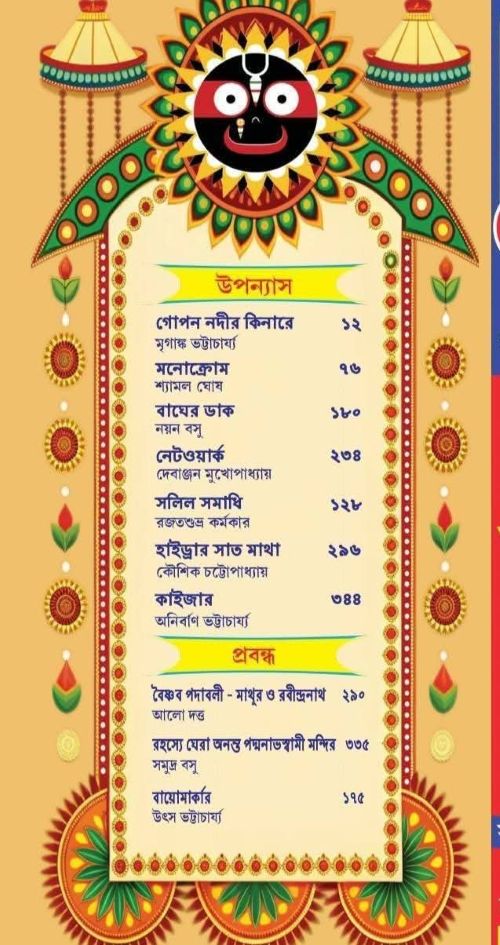 উপন্যাস
গোপন নদীর কিনারে ১২
মৃগাঙ্ক ভট্টাচার্য্য
মনোক্রোম ৭৬
শ্যামল ঘোষ
বাঘের ডাক ১৮০
নয়ন বসু
নেটওয়ার্ক ২৩৪
দেবাঞ্জন মুখোপাধ্যায়
সলিল সমাধি ১২৮
রজতশুভ্র কর্মকার
হাইড্রার সাত মাথা ২৯৬
কৌশিক চট্টোপাধ্যায়
কাইজার ৩৪৪
অনির্বাণ ভট্টাচার্য্য
প্রবন্ধ
বৈষ্ণব পদাবলী - মাথুর ও রবীন্দ্রনাথ ২৯০
আলো দত্ত
রহস্যে ঘেরা অনন্ত পদ্মনাভস্বামী মন্দির ৩৩৫
সমুদ্র বসু
বায়োমার্কার ১৭৫
উৎস ভট্টাচার্য্য